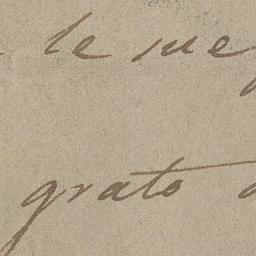 le me
grato